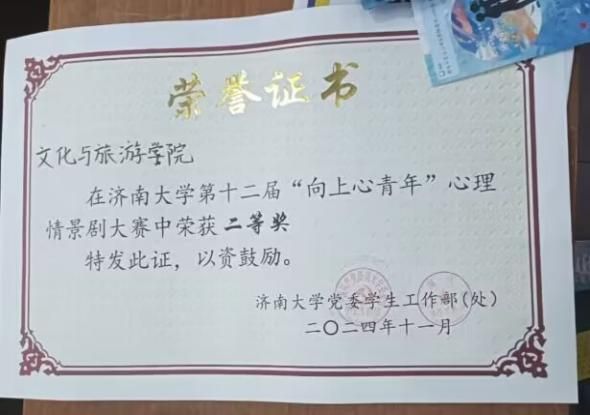 荣誉证书
文化与旅游学院
在济南大学第十二届“向上心青年”心理
情景剧大赛中荣获二等奖
特发此证，以资鼓励。
济南大学党委学生工作部(处)
二〇二四年十一月